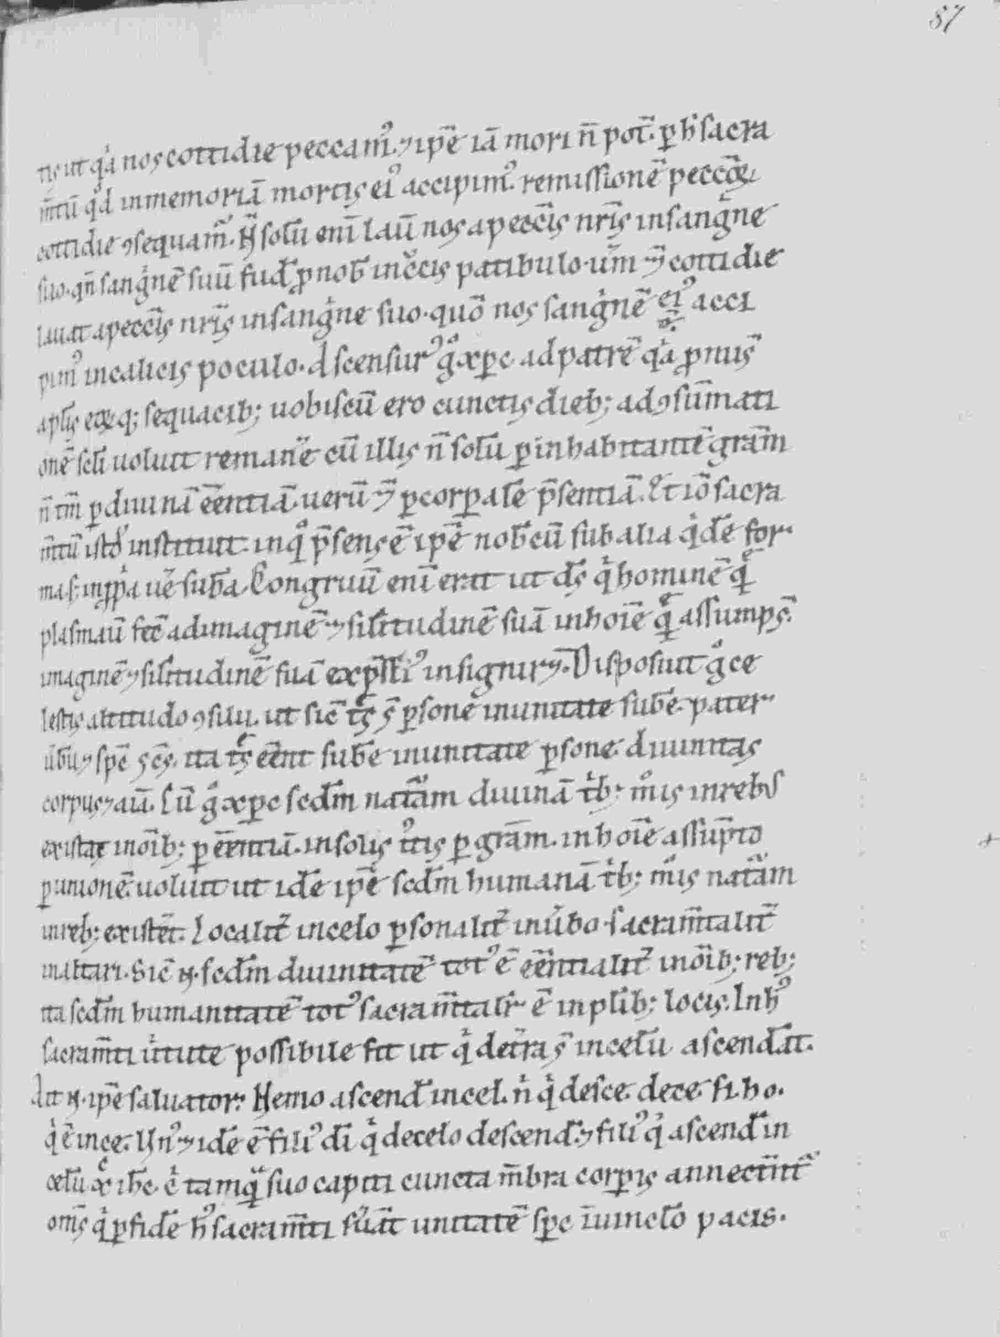 87
tis ut q̇a nos cottidie peccam᷒. ⁊ ip̄e iā mori n̄ pot̄. p h̄ sacra
m̄tū q̇d in memoriā mortis ei᷒ accipim᷒. remissionē pecco̅ꝝ
cottidie ꝯsequam̄. N̄ solū eni̅ lauī nos a peccīs nr̄is in sang̍ne
suo. qn̄ sang̍nē suū fud̄ ꝓ nob̄ in c̍cis patibulo. um̄ ⁊ cottidie
lauat a peccīs nr̄is in sang̍ne suo. quō nos sang̍nē ei᷒ acci
pim᷒ in calicis poculo. Ascensur᷒ g̊ xp̄c ad patrē q̇a ꝓmis̄
apl̄is eoꝝq; sequacib; uobiscū ero cunctis dieb; ad ꝯsūmati
onē scl̄i uoluit remanē cū illis n̄ solū p inhabitantē gram̄
n̄ tm̄ p diuinā eēntiā. uerū ⁊ p corpalē p̄sentiā. Et iō sacra
m̄tū istd̄ instituit. in q̊ p̄sens ē ip̄e nob̄cū sub alia q̇dē for
ma s; in ꝓp̍a ue̅ sub̄a. Congruū eni̅ erat ut d̄s q̍ hominē quē
plasmauī fec̄ ad imaginē ⁊ silitudinē suā in hoīe quē assumps̄.
imaginē ⁊ silitudinē suā exp̄ss᷒ insigniret̄. Disposuit g̊ ce
lestis altitudo ꝯsilii. ut sic̄ tres s̄ psone in unitate sub̄e. pater
ūbū ⁊ spē scs̄. ita tres eēnt sub̄e in unitate psone. diuinitas
corpus ⁊ aīa. Cū g̊ xp̄c scdm̄ natām diuinā t̍b; m̊is in reb᷒
existat in oīb; p eēntiā. in solis iūstis p grām. in hoīe assūpto
p unionē. uoluit ut idē ip̄e scdm̄ humanā t̍b; m̊is natām
in reb; existet̄. Localit̄ in celo psonalit̄ in ūbo. sacram̄talit̄
in altari. Sic̄ n̄. scdm̄ diuinitatē tot᷒ ē eēntialit̄ in oīb; reb;
ita scdm̄ humanitatē tot᷒ sacram̄talit̄ ē in plib; locis. In h᷒
sacram̄ti u̍tute possibile fit ut q̍ de t̄ra s̄ in celū ascendāt.
Ait n̄. ip̄e saluator. Nemo ascend̄ in cel. n̍ q̍ desce. de ce. fi. ho.
q̍ ē in ce. Un᷒ ⁊ idē ē fili᷒ di̅ q̍ de celo descend̄. ⁊ fili᷒ q̍ ascend̄ in
celū xc̄ ih̄c. c̍ tamquā suo capiti cuncta m̄bra corpis annectunt̄
om̄s q̍ p fidē h᷒ sacram̄ti s̍uāt unitatē sp̄c in uinclō pacis.